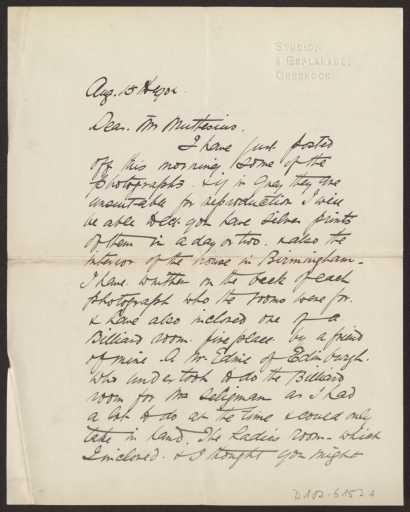 STUDIO,
5 ESPLANADE,
GREENOCK.
Aug. 15th 1902.
Dear Mr Muthesius.
I have just posted
off this morning some of the
photographs. & if in grey they are
unsuitable for reproduction I will
be able to let you have silver prints
of them in a day or two. & also the
Interior of the house in Birmingham.
I have written on the back of each
photograph who the rooms were for.
& have also inclosed one of a
Billiard room fireplace by a friend
of mine. A Mr Ednie of Edinburgh.
Who undertook to do the Billiard
room for Mr Seligman as I had
a lot to do at the time & could only
take in hand. The Ladies room - which
I inclosed. & I thought you might
D 102-6152 a